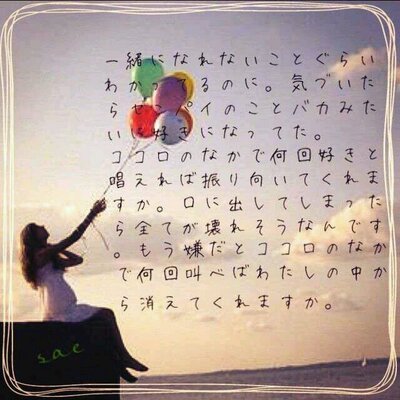 一緒になれないことぐらい
わかってるのに。気づいた
らセンパイのことバカみた
いに好きになってた。
ココロのなかで何回好きと
唱えれば振り向いてくれま
すか。口に出してしまった
ら全てが壊れそうなんです
。もう嫌だとココロのなか
で何回叫べばわたしの中か
ら消えてくれますか。
sae